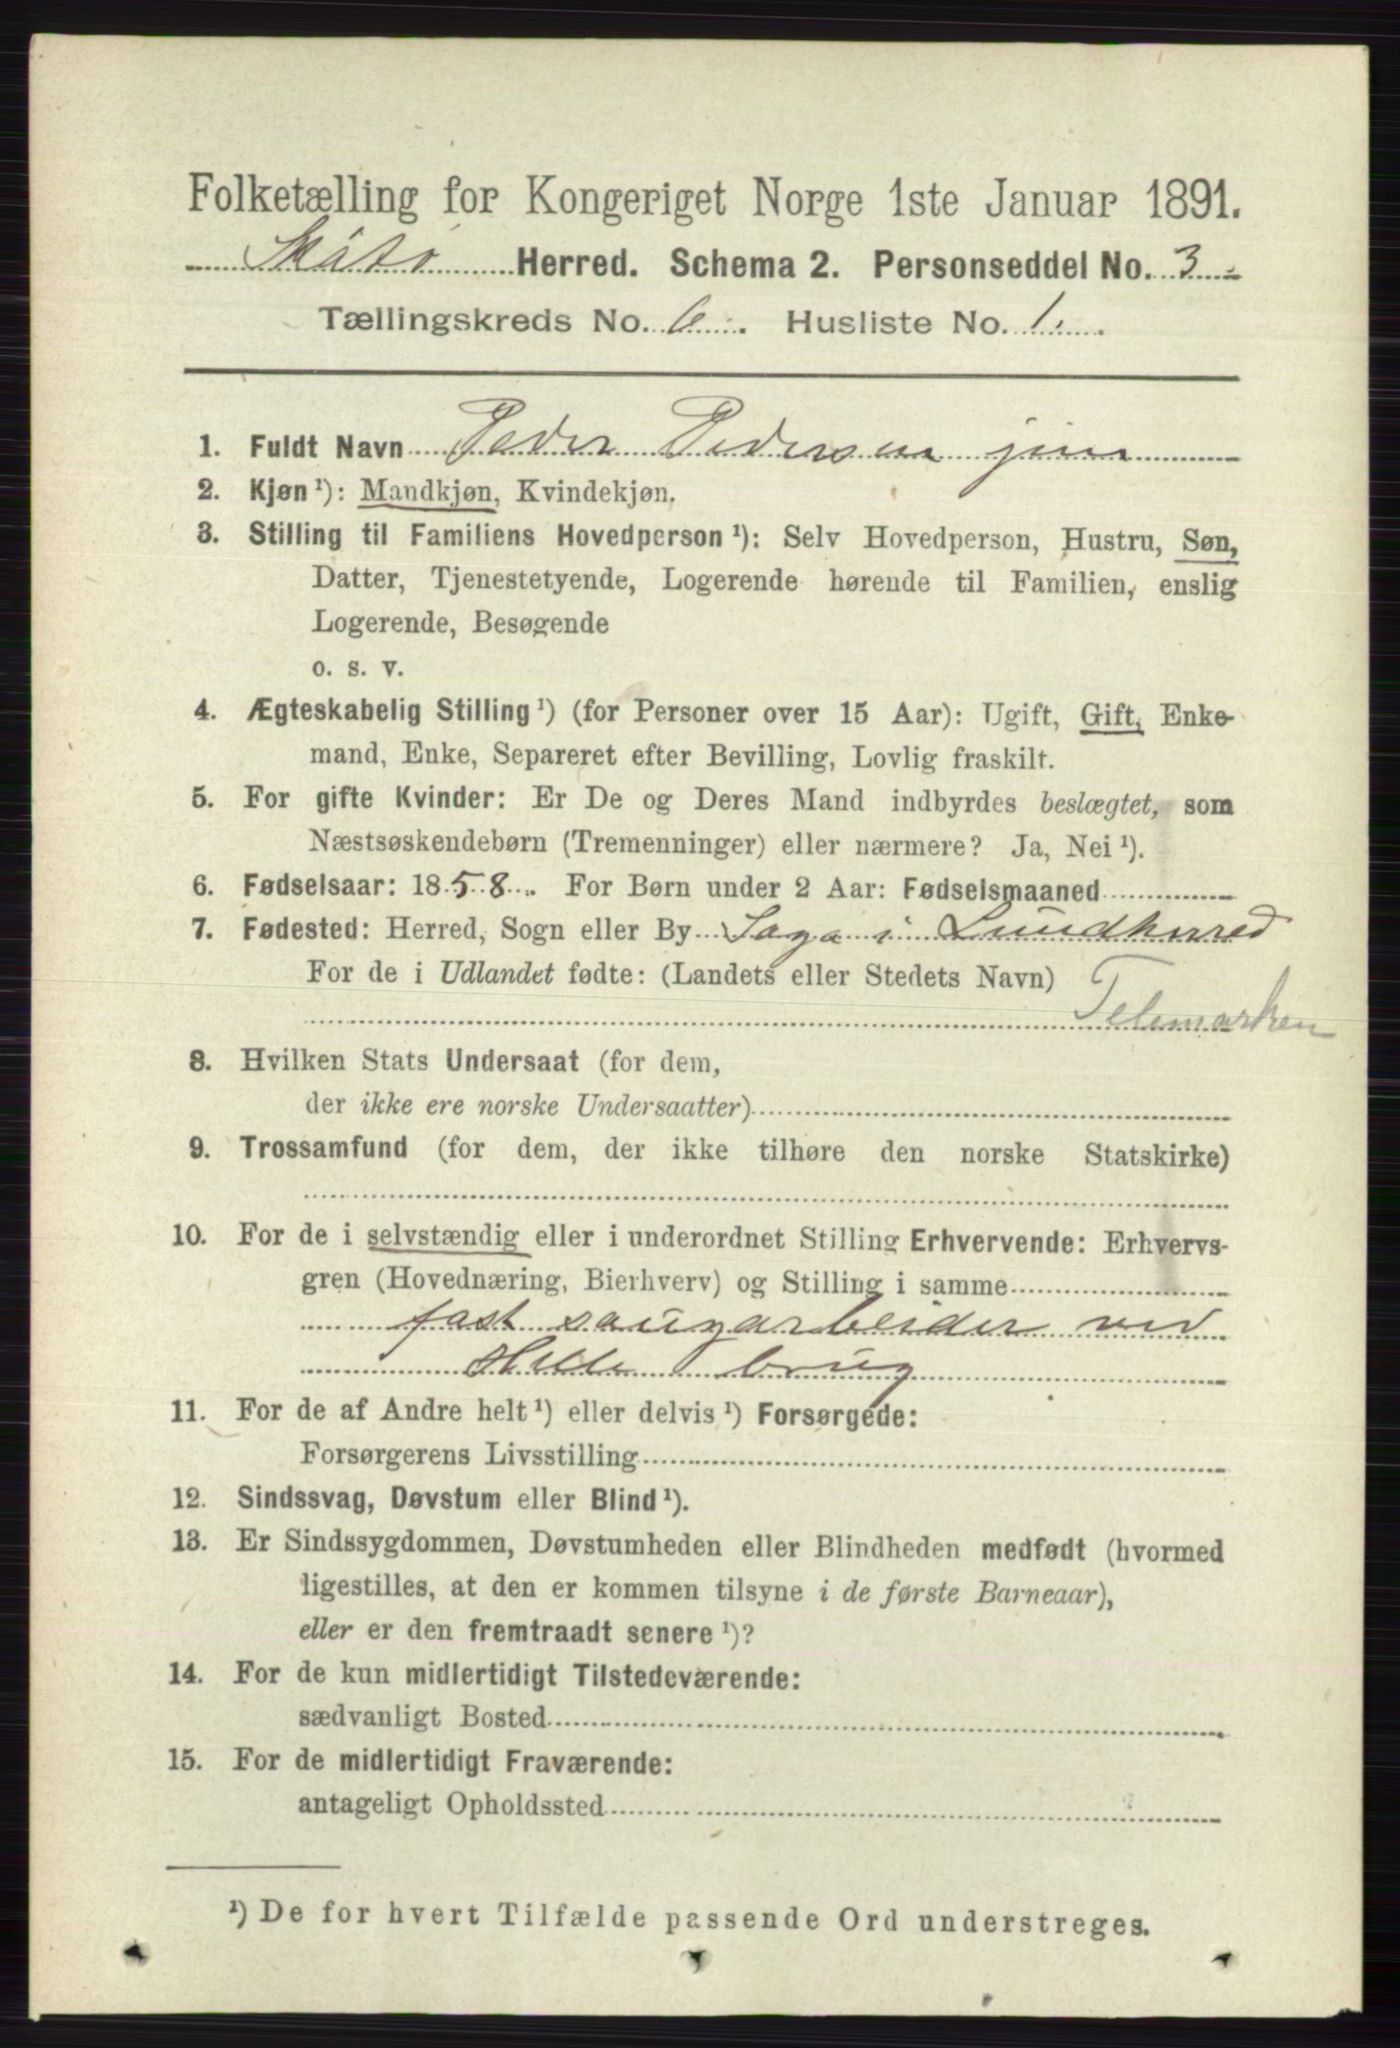 Folketælling for Kongeriget Norge 1ste Januar 1891.
Skåtø Herred. Schema 2. Personseddel No. 3
Tællingskreds No. 6. Husliste No. 1.
1. Fuldt Navn Peder Pedersen jun
2. Kjøn ¹): Mandkjøn, Kvindekjøn.
3. Stilling til Familiens Hovedperson ¹): Selv Hovedperson, Hustru, Søn,
Datter, Tjenestetyende, Logerende hørende til Familien, enslig
Logerende, Besøgende
o. s. v.
4. Ægteskabelig Stilling ¹) (for Personer over 15 Aar): Ugift, Gift, Enke-
mand, Enke, Separeret efter Bevilling, Lovlig fraskilt.
5. For gifte Kvinder: Er De og Deres Mand indbyrdes beslægtet, som
Næstsøskendebørn (Tremenninger) eller nærmere? Ja, Nei ¹).
6. Fødselsaar: 1858. For Børn under 2 Aar: Fødselsmaaned
7. Fødested: Herred, Sogn eller By i Lundherred
For de i Udlandet fødte: (Landets eller Stedets Navn)
Telemarken
8. Hvilken Stats Undersaat (for dem,
der ikke ere norske Undersaatter)
9. Trossamfund (for dem, der ikke tilhøre den norske Statskirke)
10. For de i selvstændig eller i underordnet Stilling Erhvervende: Erhvervs-
gren (Hovednæring, Bierhverv) og Stilling i samme
fast saugarbeider ved
Helle brug
11. For de af Andre helt ¹) eller delvis ¹) Forsørgede:
Forsørgerens Livsstilling
12. Sindssvag, Døvstum eller Blind ¹).
13. Er Sindssygdommen, Døvstumheden eller Blindheden medfødt (hvormed
ligestilles, at den er kommen tilsyne i de første Barneaar),
eller er den fremtraadt senere ¹)?
14. For de kun midlertidigt Tilstedeværende:
sædvanligt Bosted
15. For de midlertidigt Fraværende:
antageligt Opholdssted
¹) De for hvert Tilfælde passende Ord understreges.